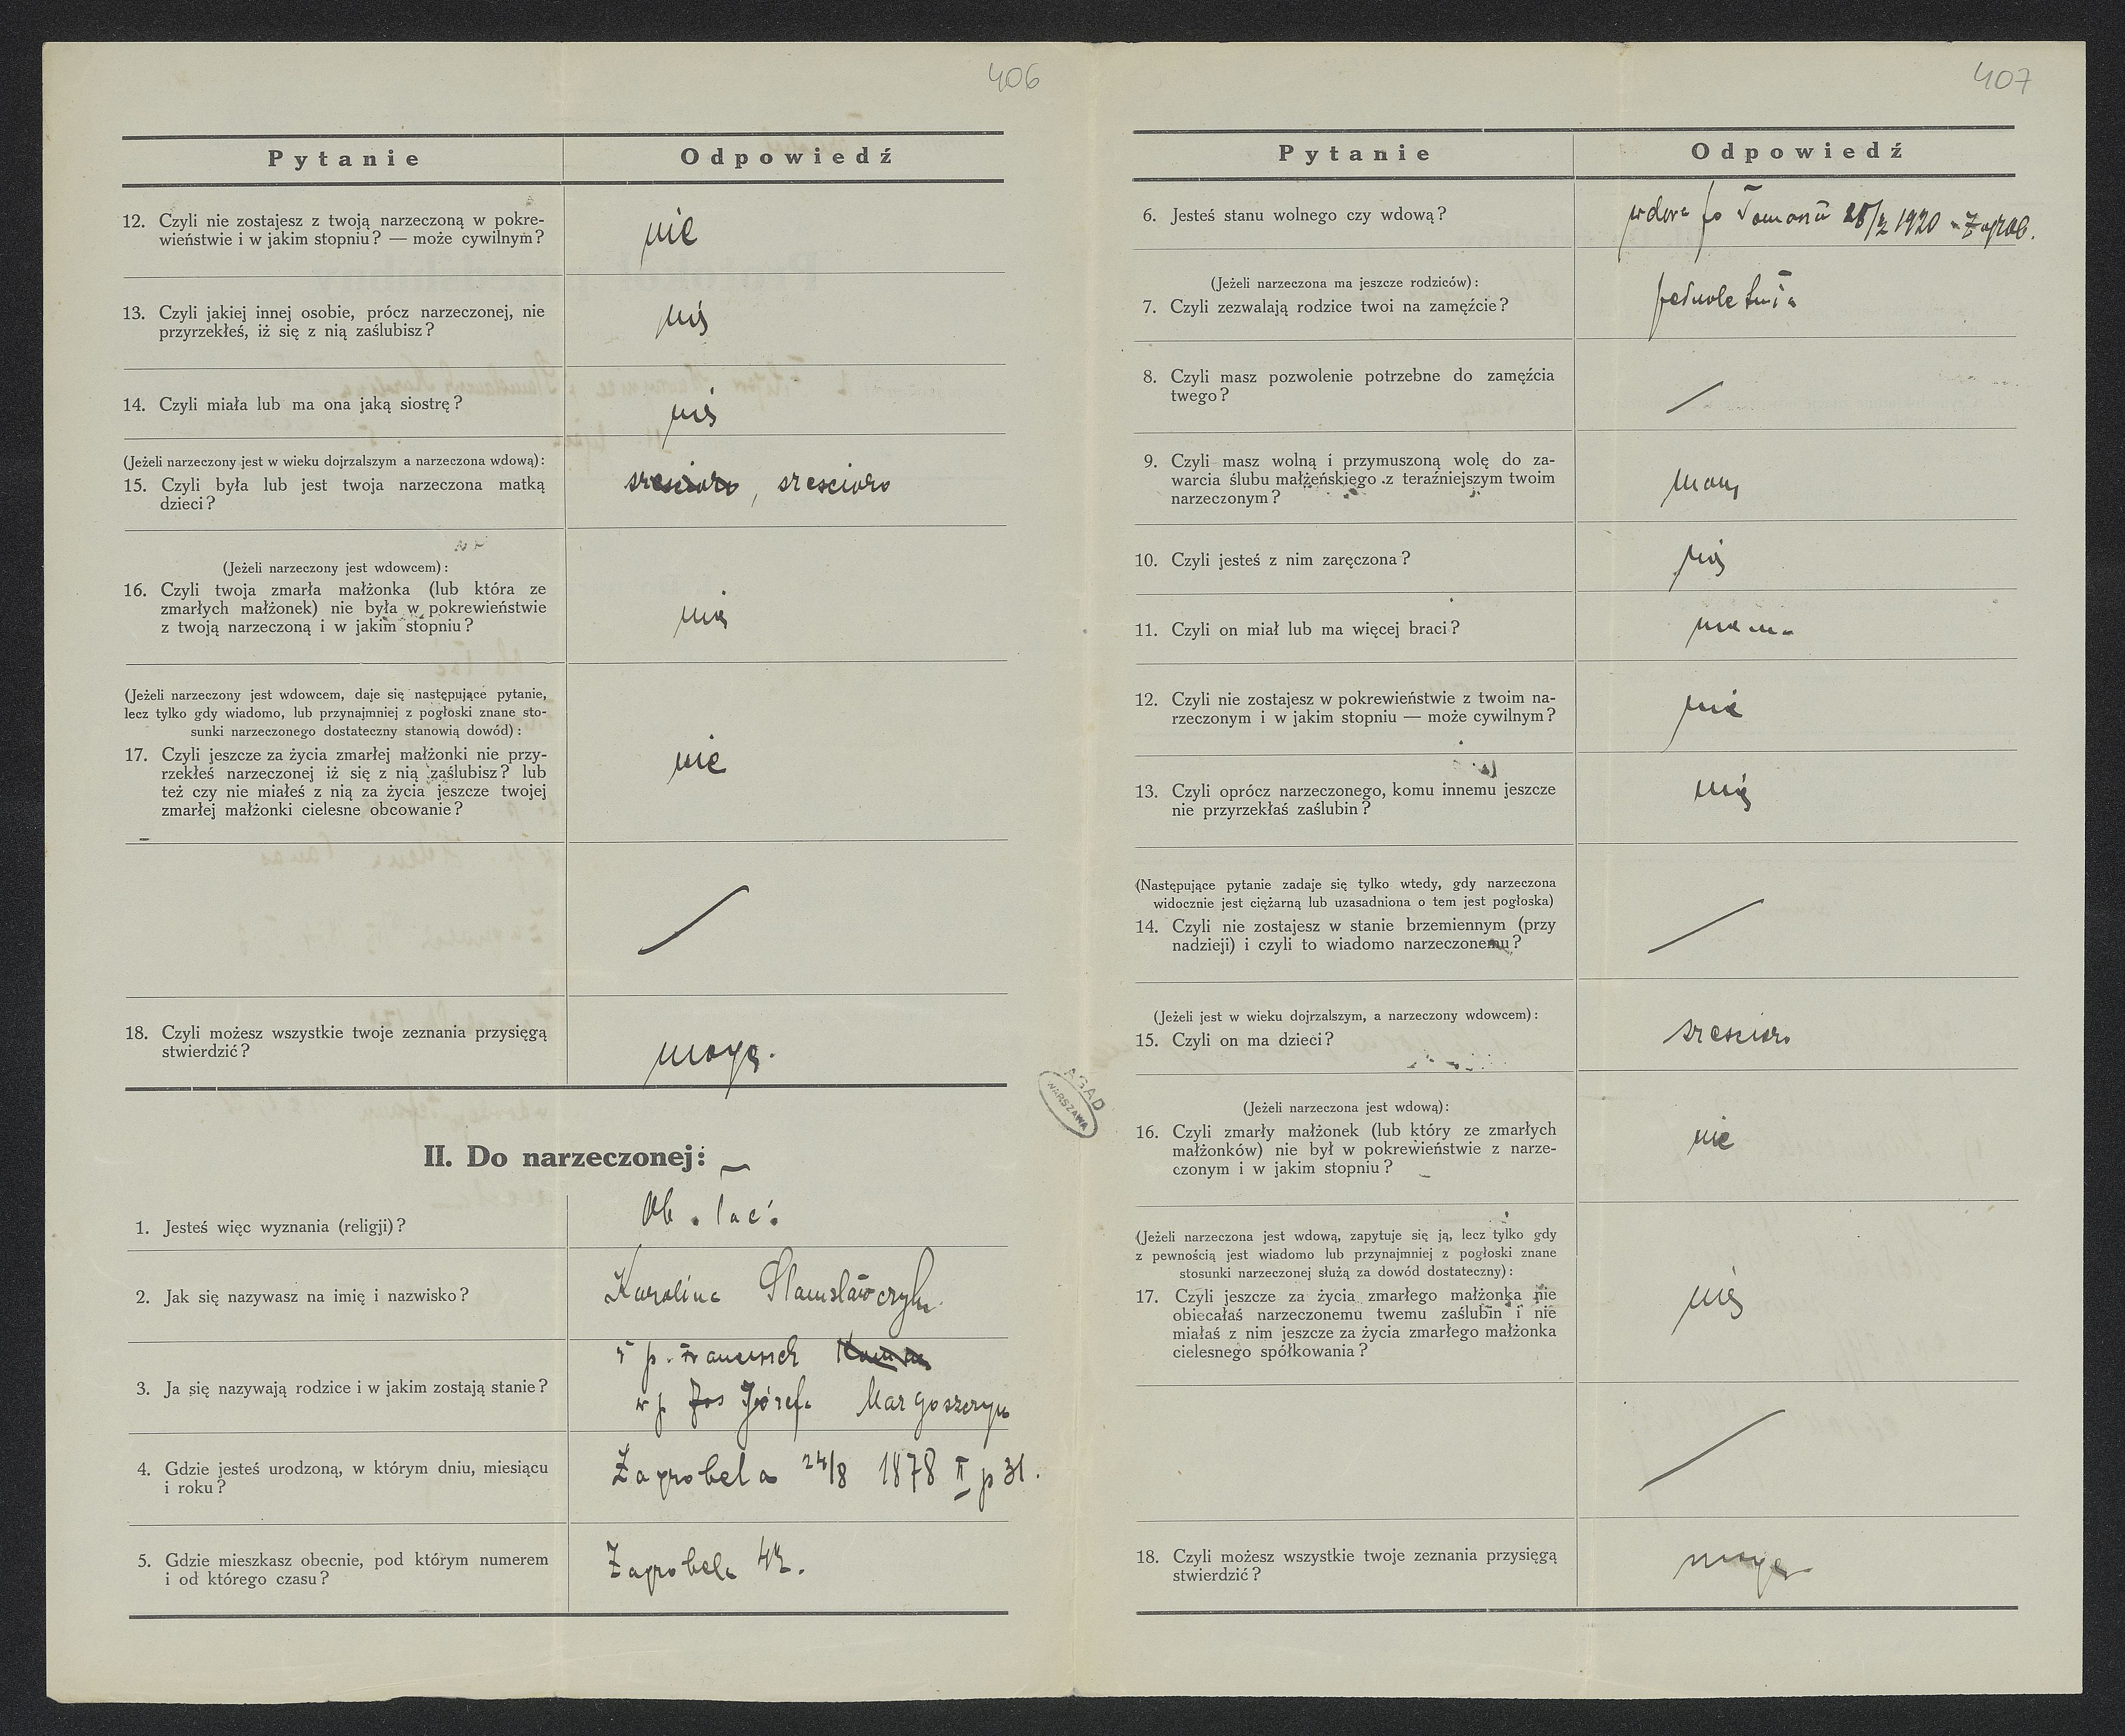 406
Pytanie Odpowiedź
12. Czyli nie zostajesz z twoją narzeczoną w pokre-
wieństwie i w jakim stopniu? — może cywilnym?
nie
13. Czyli jakiej innej osobie, prócz narzeczonej, nie
przyrzekłeś, iż się z nią zaślubisz?
nie
14. Czyli miała lub ma ona jaką siostrę?
nie
(Jeżeli narzeczony jest w wieku dojrzalszym a narzeczona wdową):
15. Czyli była lub jest twoja narzeczona matką
dzieci?
sześcioro, sześcioro
(Jeżeli narzeczony jest wdowcem):
16. Czyli twoja zmarła małżonka (lub która ze
zmarłych małżonek) nie była w pokrewieństwie
z twoją narzeczoną i w jakim stopniu?
nie
(Jeżeli narzeczony jest wdowcem, daje się następujące pytanie,
lecz tylko gdy wiadomo, lub przynajmniej z pogłoski znane sto-
sunki narzeczonego dostateczny stanowią dowód):
17. Czyli jeszcze za życia zmarłej małżonki nie przy-
rzekłeś narzeczonej iż się z nią zaślubisz? lub
też czy nie miałeś z nią za życia jeszcze twojej
zmarłej małżonki cielesne obcowanie?
nie
18. Czyli możesz wszystkie twoje zeznania przysięgą
stwierdzić?
mogę.
II. Do narzeczonej:
1. Jesteś więc wyznania (religji)?
Ob. łać.
2. Jak się nazywasz na imię i nazwisko?
Karolina Stanisławczyk
3. Ja się nazywają rodzice i w jakim zostają stanie?
ś p. Franciszek
ś p. Józefa Margoszczyn
4. Gdzie jesteś urodzoną, w którym dniu, miesiącu
i roku?
Zagrobela 24/8 1878 II p 31.
5. Gdzie mieszkasz obecnie, pod którym numerem
i od którego czasu?
Zagrobela 42.
AGAD
WARSZAWA
407
Pytanie Odpowiedź
6. Jesteś stanu wolnego czy wdową?
wdowa po Tomaszu 1920 Zagrob.
(Jeżeli narzeczona ma jeszcze rodziców):
7. Czyli zezwalają rodzice twoi na zamęźcie?
pełnoletnia
8. Czyli masz pozwolenie potrzebne do zamęźcia
twego?
9. Czyli masz wolną i przymuszoną wolę do za-
warcia ślubu małżeńskiego z teraźniejszym twoim
narzeczonym?
mam
10. Czyli jesteś z nim zaręczona?
nie
11. Czyli on miał lub ma więcej braci?
12. Czyli nie zostajesz w pokrewieństwie z twoim na-
rzeczonym i w jakim stopniu — może cywilnym?
nie
13. Czyli oprócz narzeczonego, komu innemu jeszcze
nie przyrzekłaś zaślubin?
nie
(Następujące pytanie zadaje się tylko wtedy, gdy narzeczona
widocznie jest ciężarną lub uzasadniona o tem jest pogłoska)
14. Czyli nie zostajesz w stanie brzemiennym (przy
nadzieji) i czyli to wiadomo narzeczonemu?
(Jeżeli jest w wieku dojrzalszym, a narzeczony wdowcem):
15. Czyli on ma dzieci?
sześcioro
(Jeżeli narzeczona jest wdową):
16. Czyli zmarły małżonek (lub który ze zmarłych
małżonków) nie był w pokrewieństwie z narze-
czonym i w jakim stopniu?
nie
(Jeżeli narzeczona jest wdową, zapytuje się ją, lecz tylko gdy
z pewnością jest wiadomo lub przynajmniej z pogłoski znane
stosunki narzeczonej służą za dowód dostateczny):
17. Czyli jeszcze za życia zmarłego małżonka nie
obiecałaś narzeczonemu twemu zaślubin i nie
miałaś z nim jeszcze za życia zmarłego małżonka
cielesnego spółkowania?
nie
18. Czyli możesz wszystkie twoje zeznania przysięgą
stwierdzić?
mogę